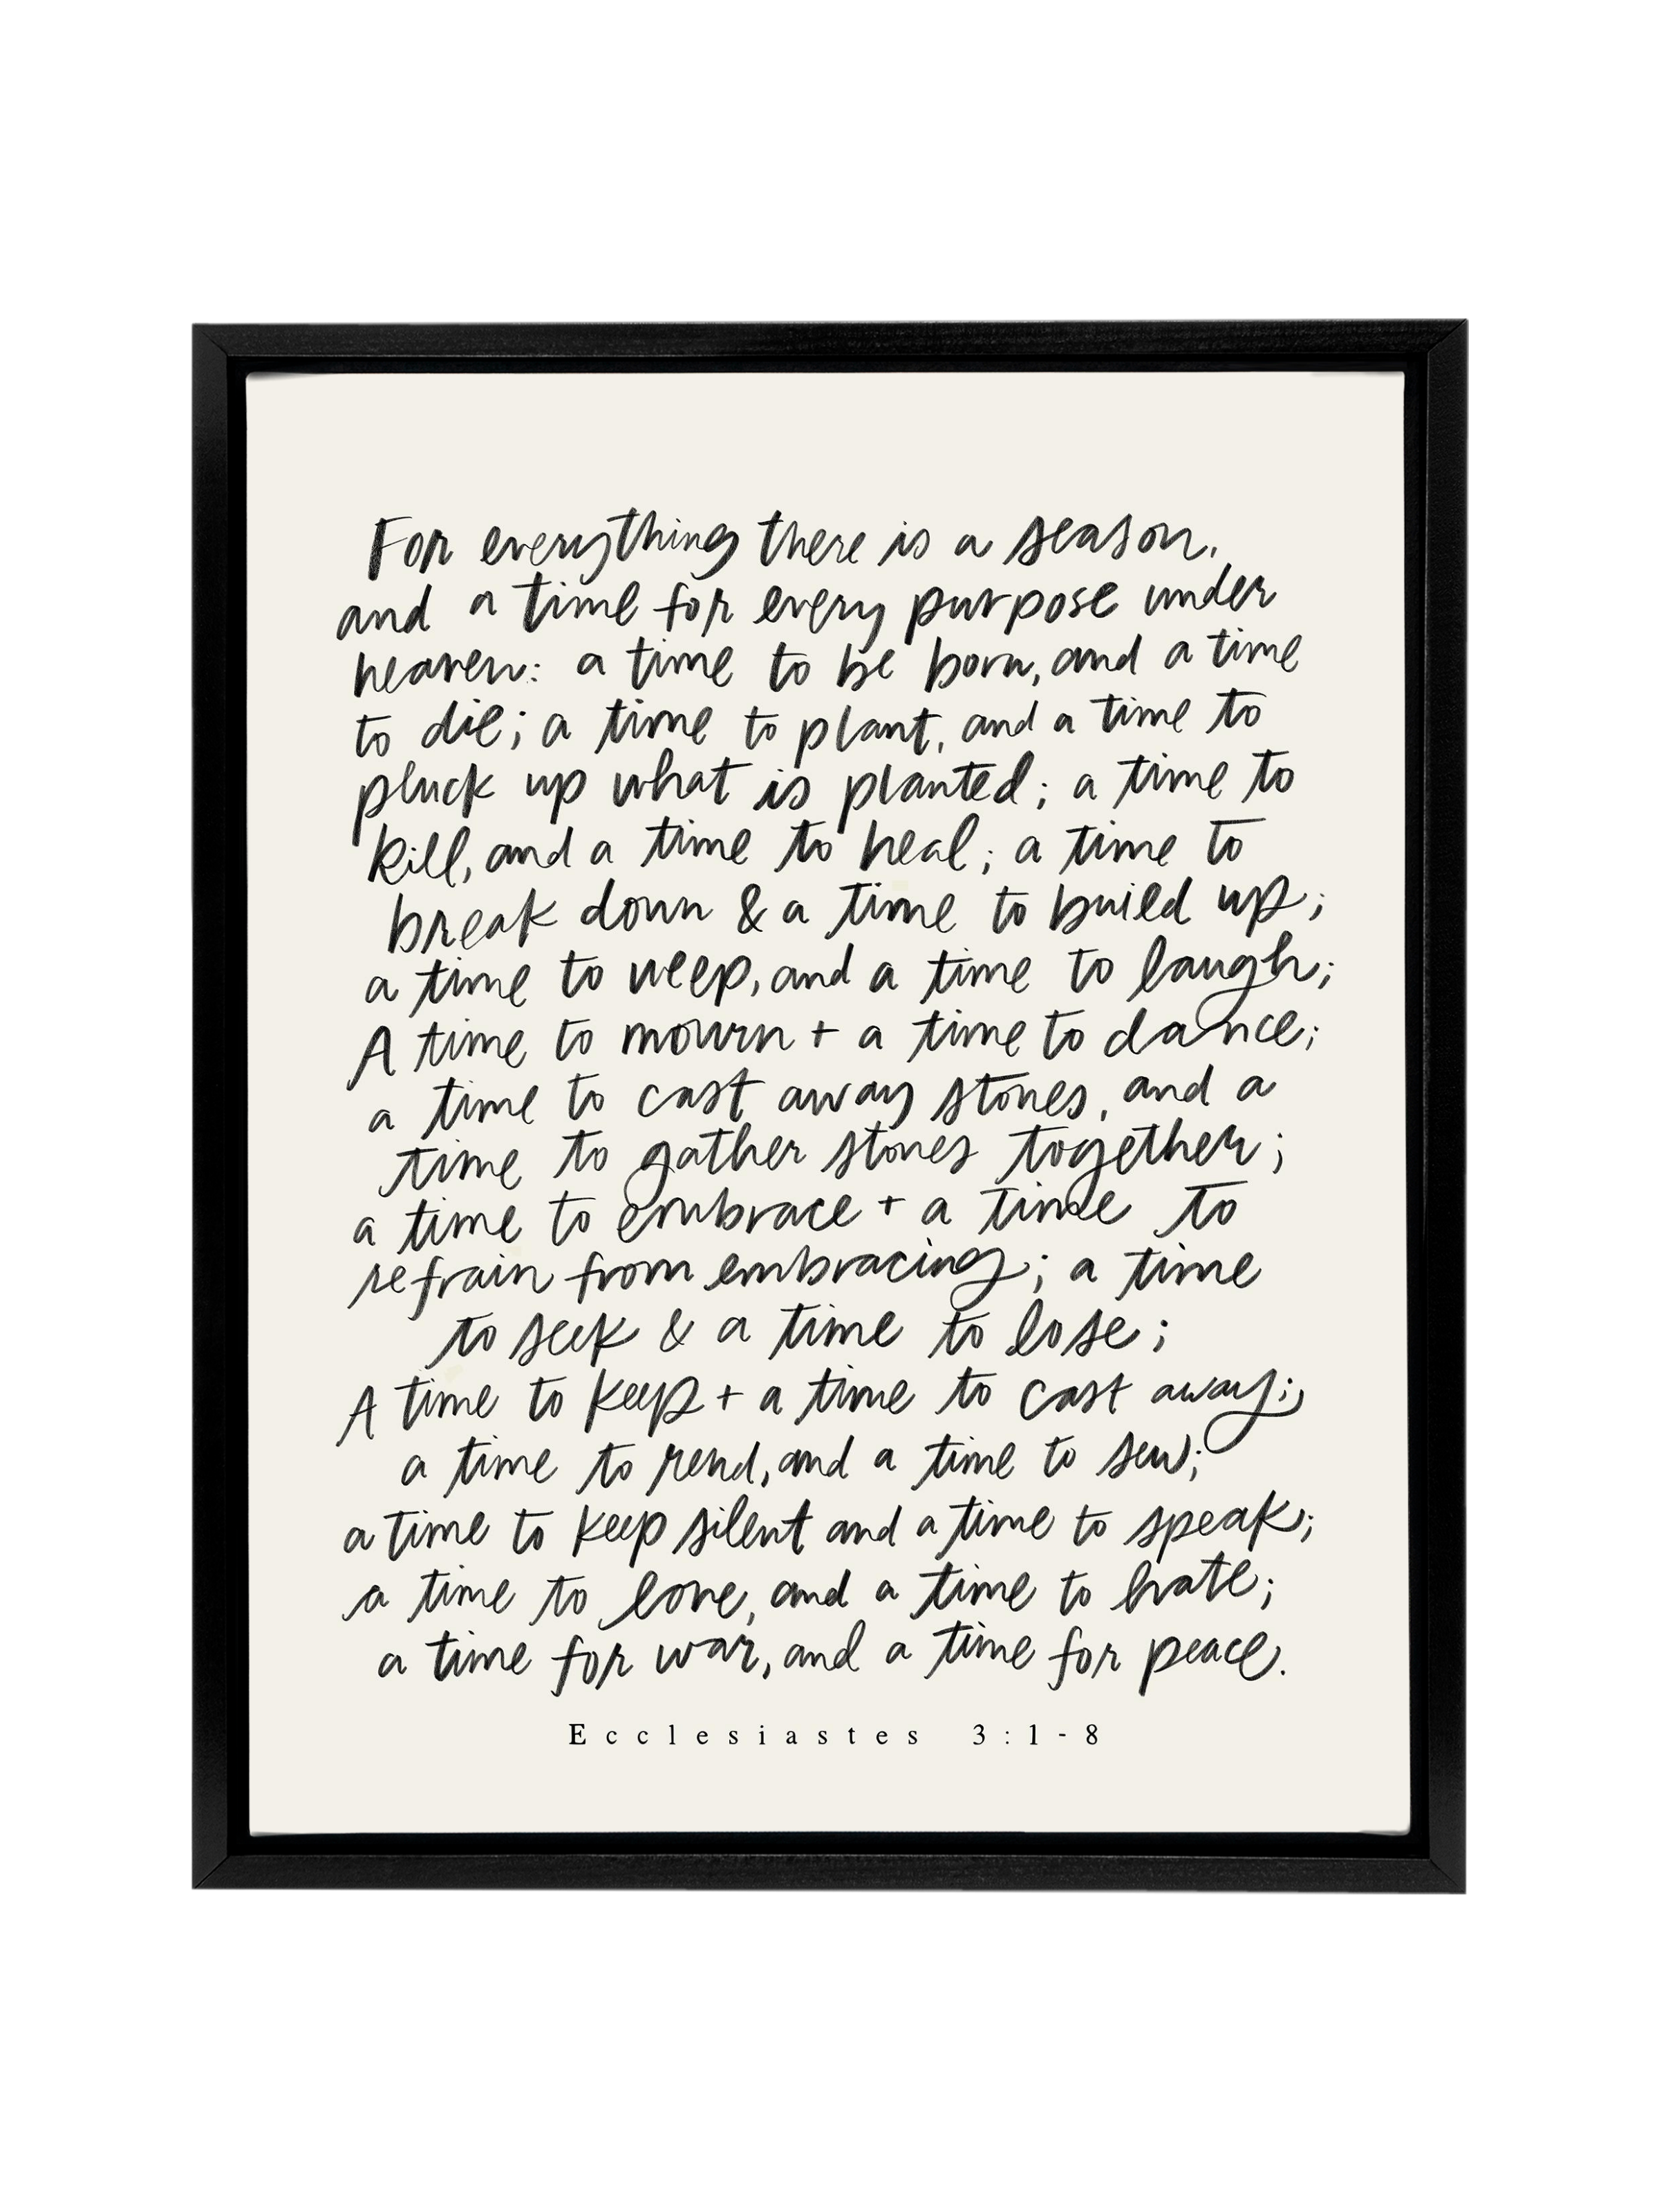 For everything there is a season,
and a time for every purpose under
heaven: a time to be born, and a time
to die; a time to plant, and a time to
pluck up what is planted; a time to
kill, and a time to heal; a time to
break down & a time to build up;
a time to weep, and a time to laugh;
A time to mourn + a time to dance;
a time to cast away stones, and a
time to gather stones together;
a time to embrace + a time to
refrain from embracing; a time
to seek & a time to lose;
A time to keep + a time to cast away;
a time to rend, and a time to sew;
a time to keep silent and a time to speak;
a time to love, and a time to hate;
a time for war, and a time for peace.
Ecclesiastes 3:1-8